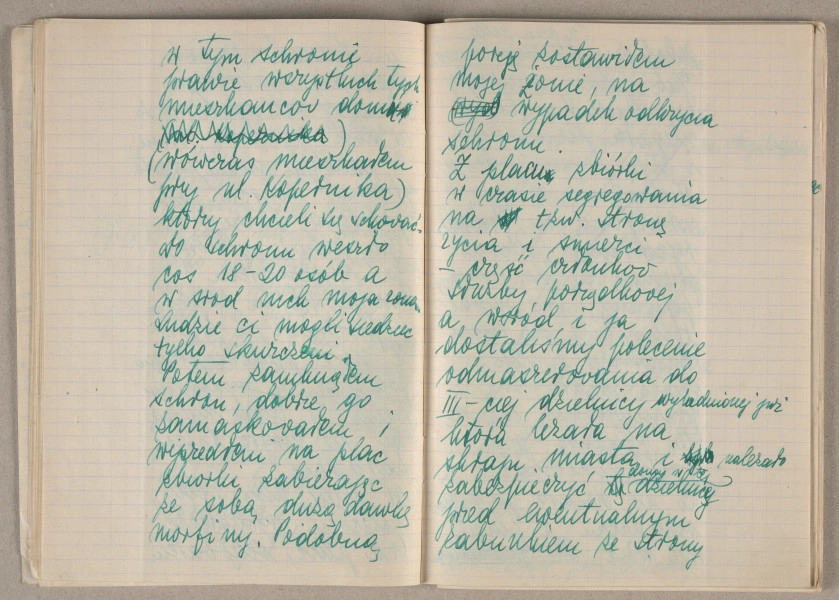 w tym schronie
prawie wszystkich tych
mieszkańców domu
(wówczas mieszkałem
przy ul. Kopernika)
który chcieli się schować.
do schronu weszło
cos 18-20 osób a
w srod nich moja żona.
Ludzie ci mogli siedziec
tylko skurczeni.
Potem zamknąłem
schron, dobrze go
zamaskowałem i
wyszedłem na plac
zbiorki zabierając
ze sobą dużą dawkę
morfiny. Podobną
porcję zostawiłem
mojej żonie, na
wypadek odkrycia
schronu.
Z placu zbiórki
w czasie segregowania
na tzw. stronę
życia i smierci
- część członków
Służby porządkowej
a wsród i ja
dostaliśmy polecenie
odmaszerowania do
III-ciej dzielnicy wysiedlonej już
która leżała na
skraju miasta i należało
domy w tej
zabezpieczyć dzielnicy
przed ewentualnym
rabunkiem ze strony